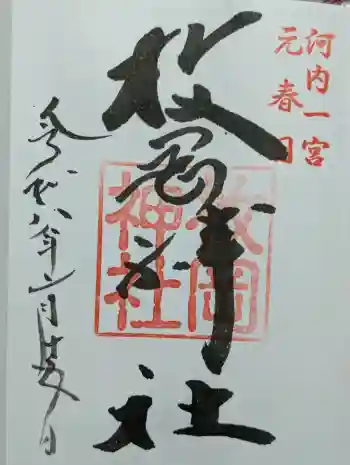 河内一宮
元春日
枚岡神社
枚岡
神社
令和八年一月